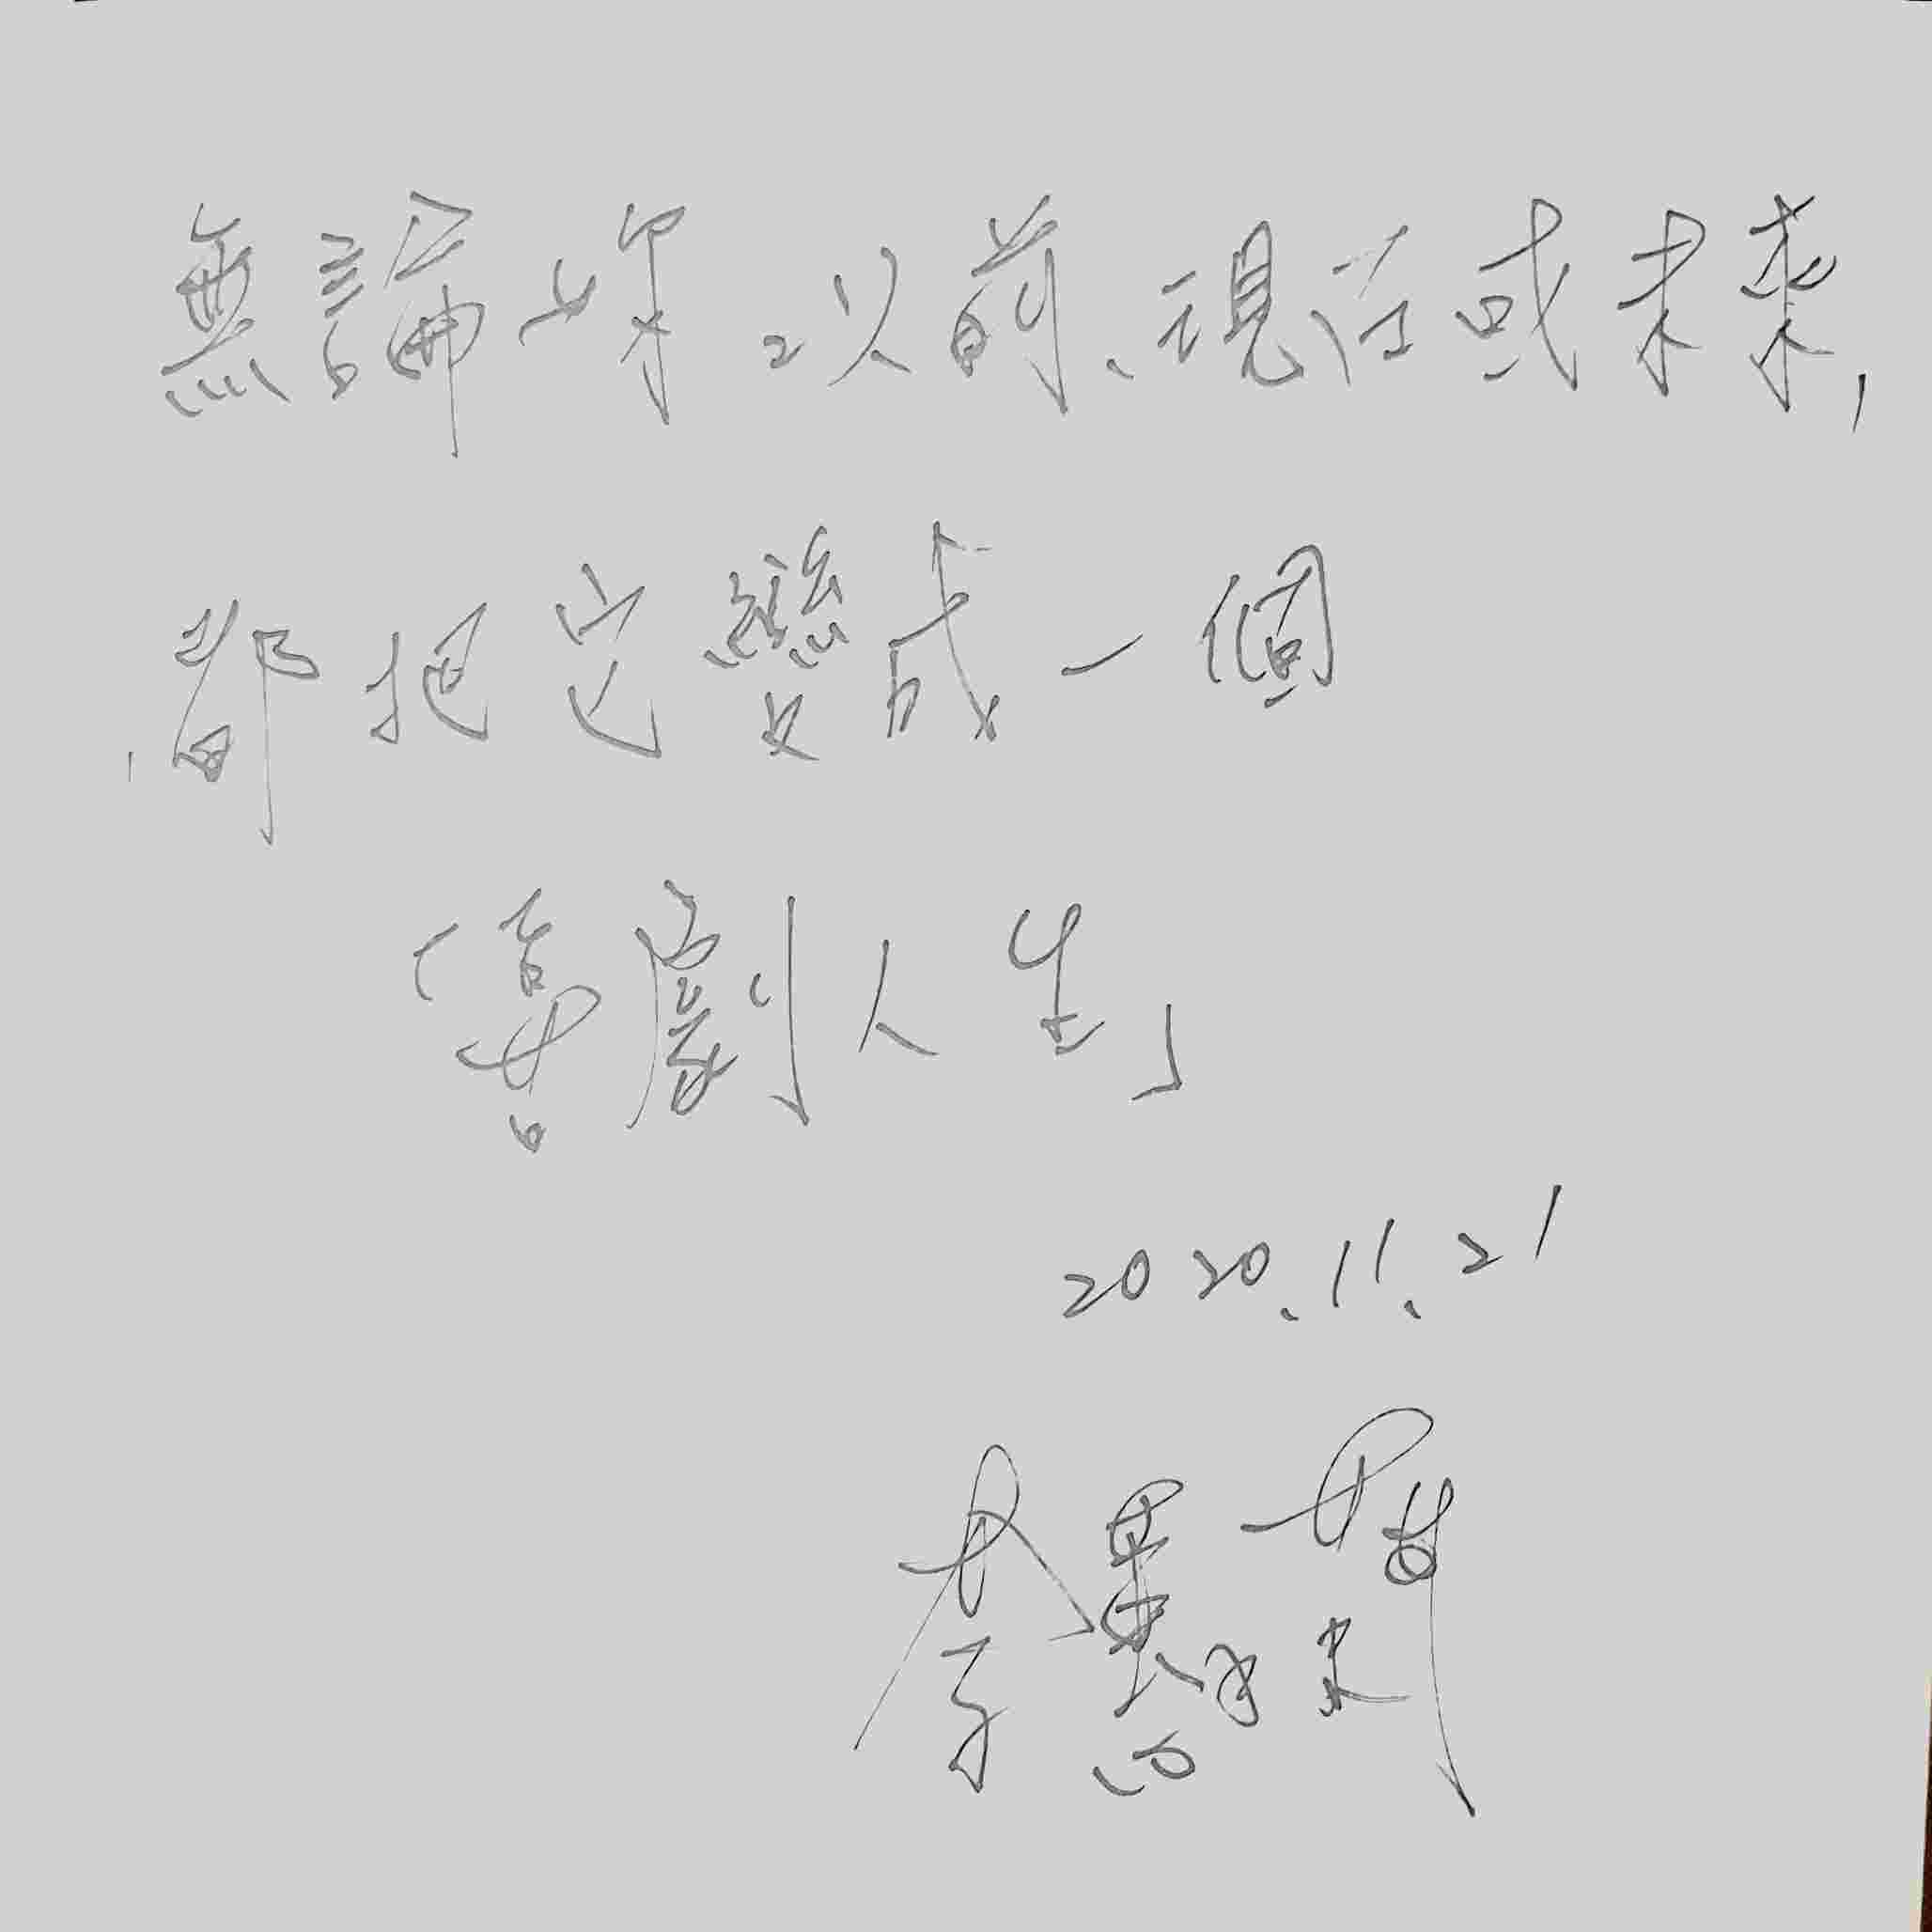 無論妳以前、現在或未來,
都把它變成一個
「喜劇人生」
2020.11.21
李